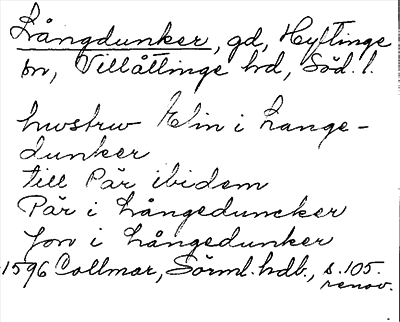 Långdunker, gd, Hyltinge
sn, Villåttinge hd, Söd. l.
hwstrw Elin i Lange-
dunker
till Pär ibidem
Pär i Långeduncker
Jon i Långedunker
1596 Collmar, Sörml. hdb., s. 105.
renov.